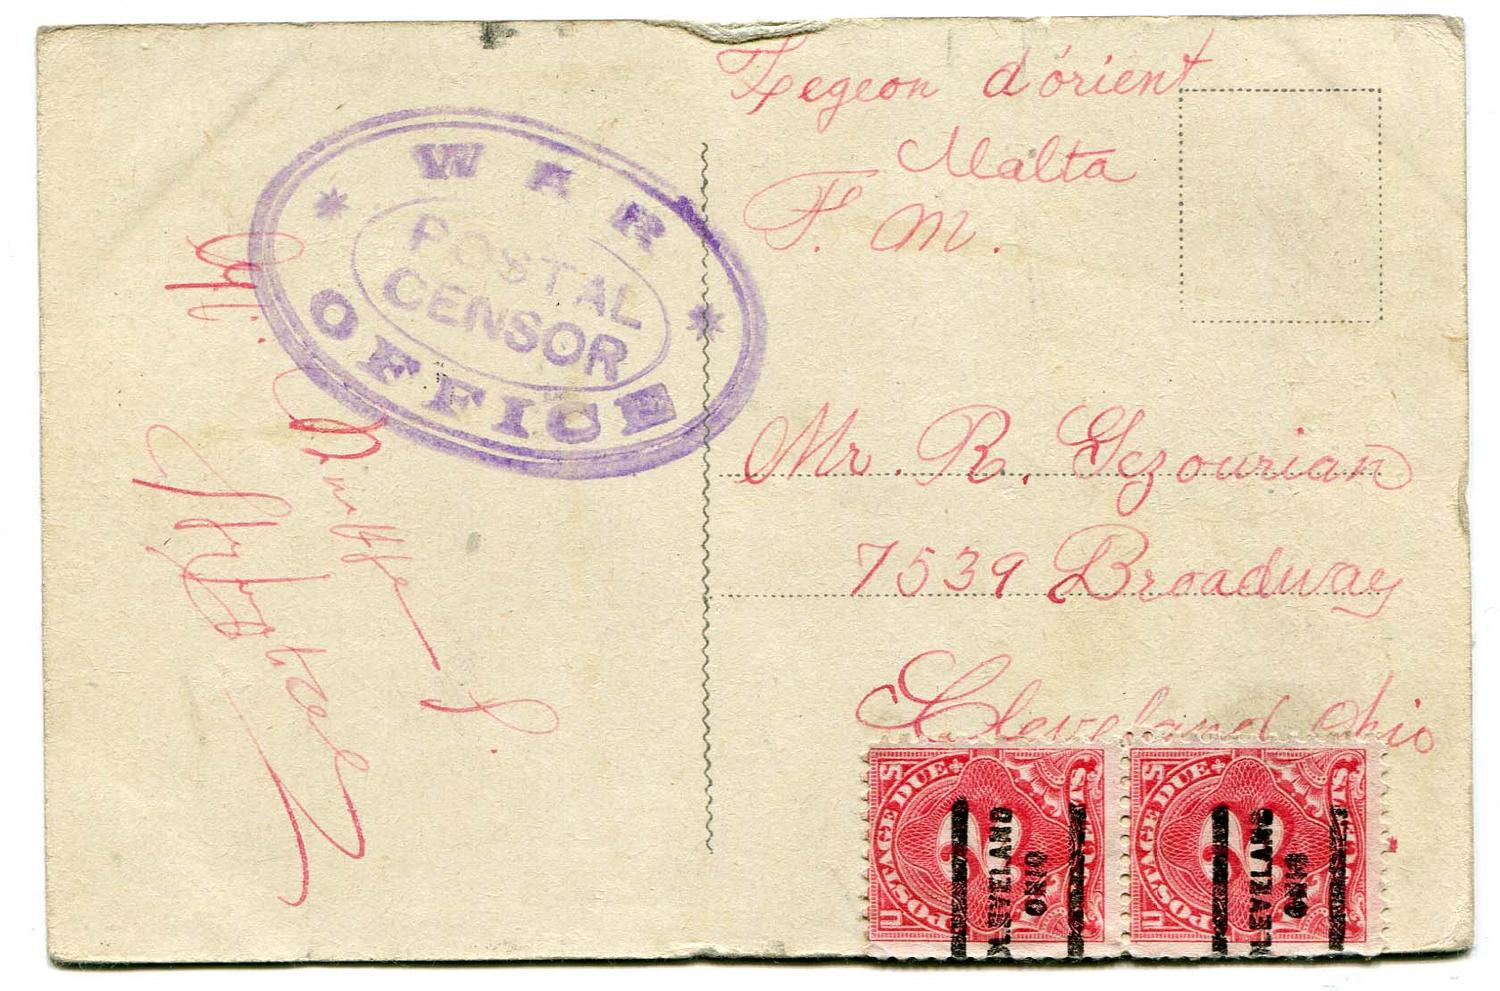 Legeon d'órient
Malta
F. M.
WAR
POSTAL
CENSOR
OFFICE
Mr. R. Gezourian
7539 Broadway
Cleveland Ohio
U.S. POSTAGE DUE
2
CLEVELAND
OHIO
U.S. POSTAGE DUE
2
CLEVELAND
OHIO